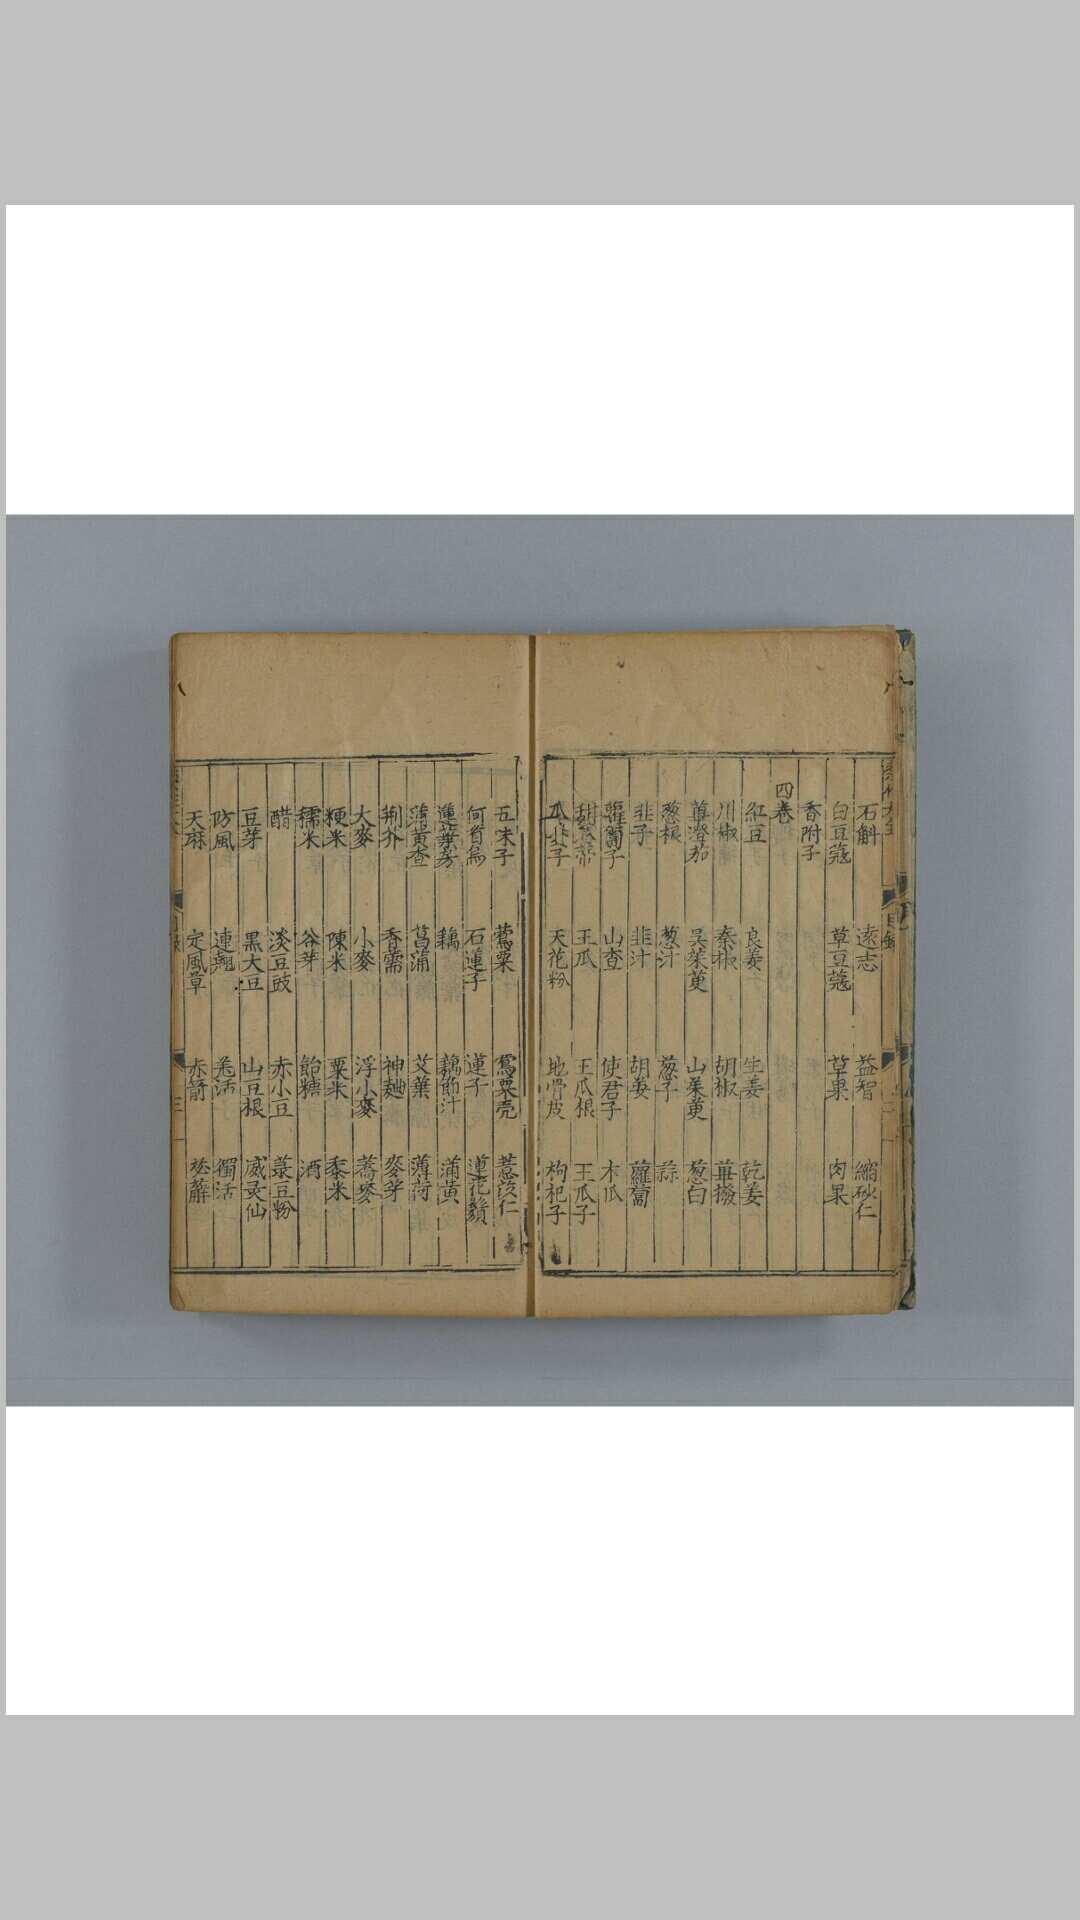 石斛　遠志　益智　縮砂仁
白豆蔻　草豆蔻　草果　肉果
香附子
四卷
紅豆　良姜　生姜　乾姜
川椒　秦椒　胡椒　蓽撥
蓽澄茄　吳茱萸　山茱萸　葱白
葱根　葱汁　葱子　蒜
韭子　韭汁　胡荽　蘿蔔
蘿蔔子　山查　使君子　木瓜
甜瓜蒂　王瓜　王瓜根　王瓜子
瓜蔞子　天花粉　地骨皮　枸杞子
五味子　鶯粟　鶯粟壳　薏苡仁
何首烏　石蓮子　蓮子　蓮花鬚
蓮葉房　藕　藕節汁　蒲黃
蒲黃查　菖蒲　艾葉　薄荷
荊芥　香薷　神麯　麥芽
大麥　小麥　浮小麥　蕎麥
粳米　陳米　粟米　黍米
糯米　谷芽　飴糖　酒
醋　淡豆豉　赤小豆　菉豆粉
豆芽　黑大豆　山豆根　威灵仙
防風　連翹　羌活　獨活
天麻　定風草　赤箭
目錄
三